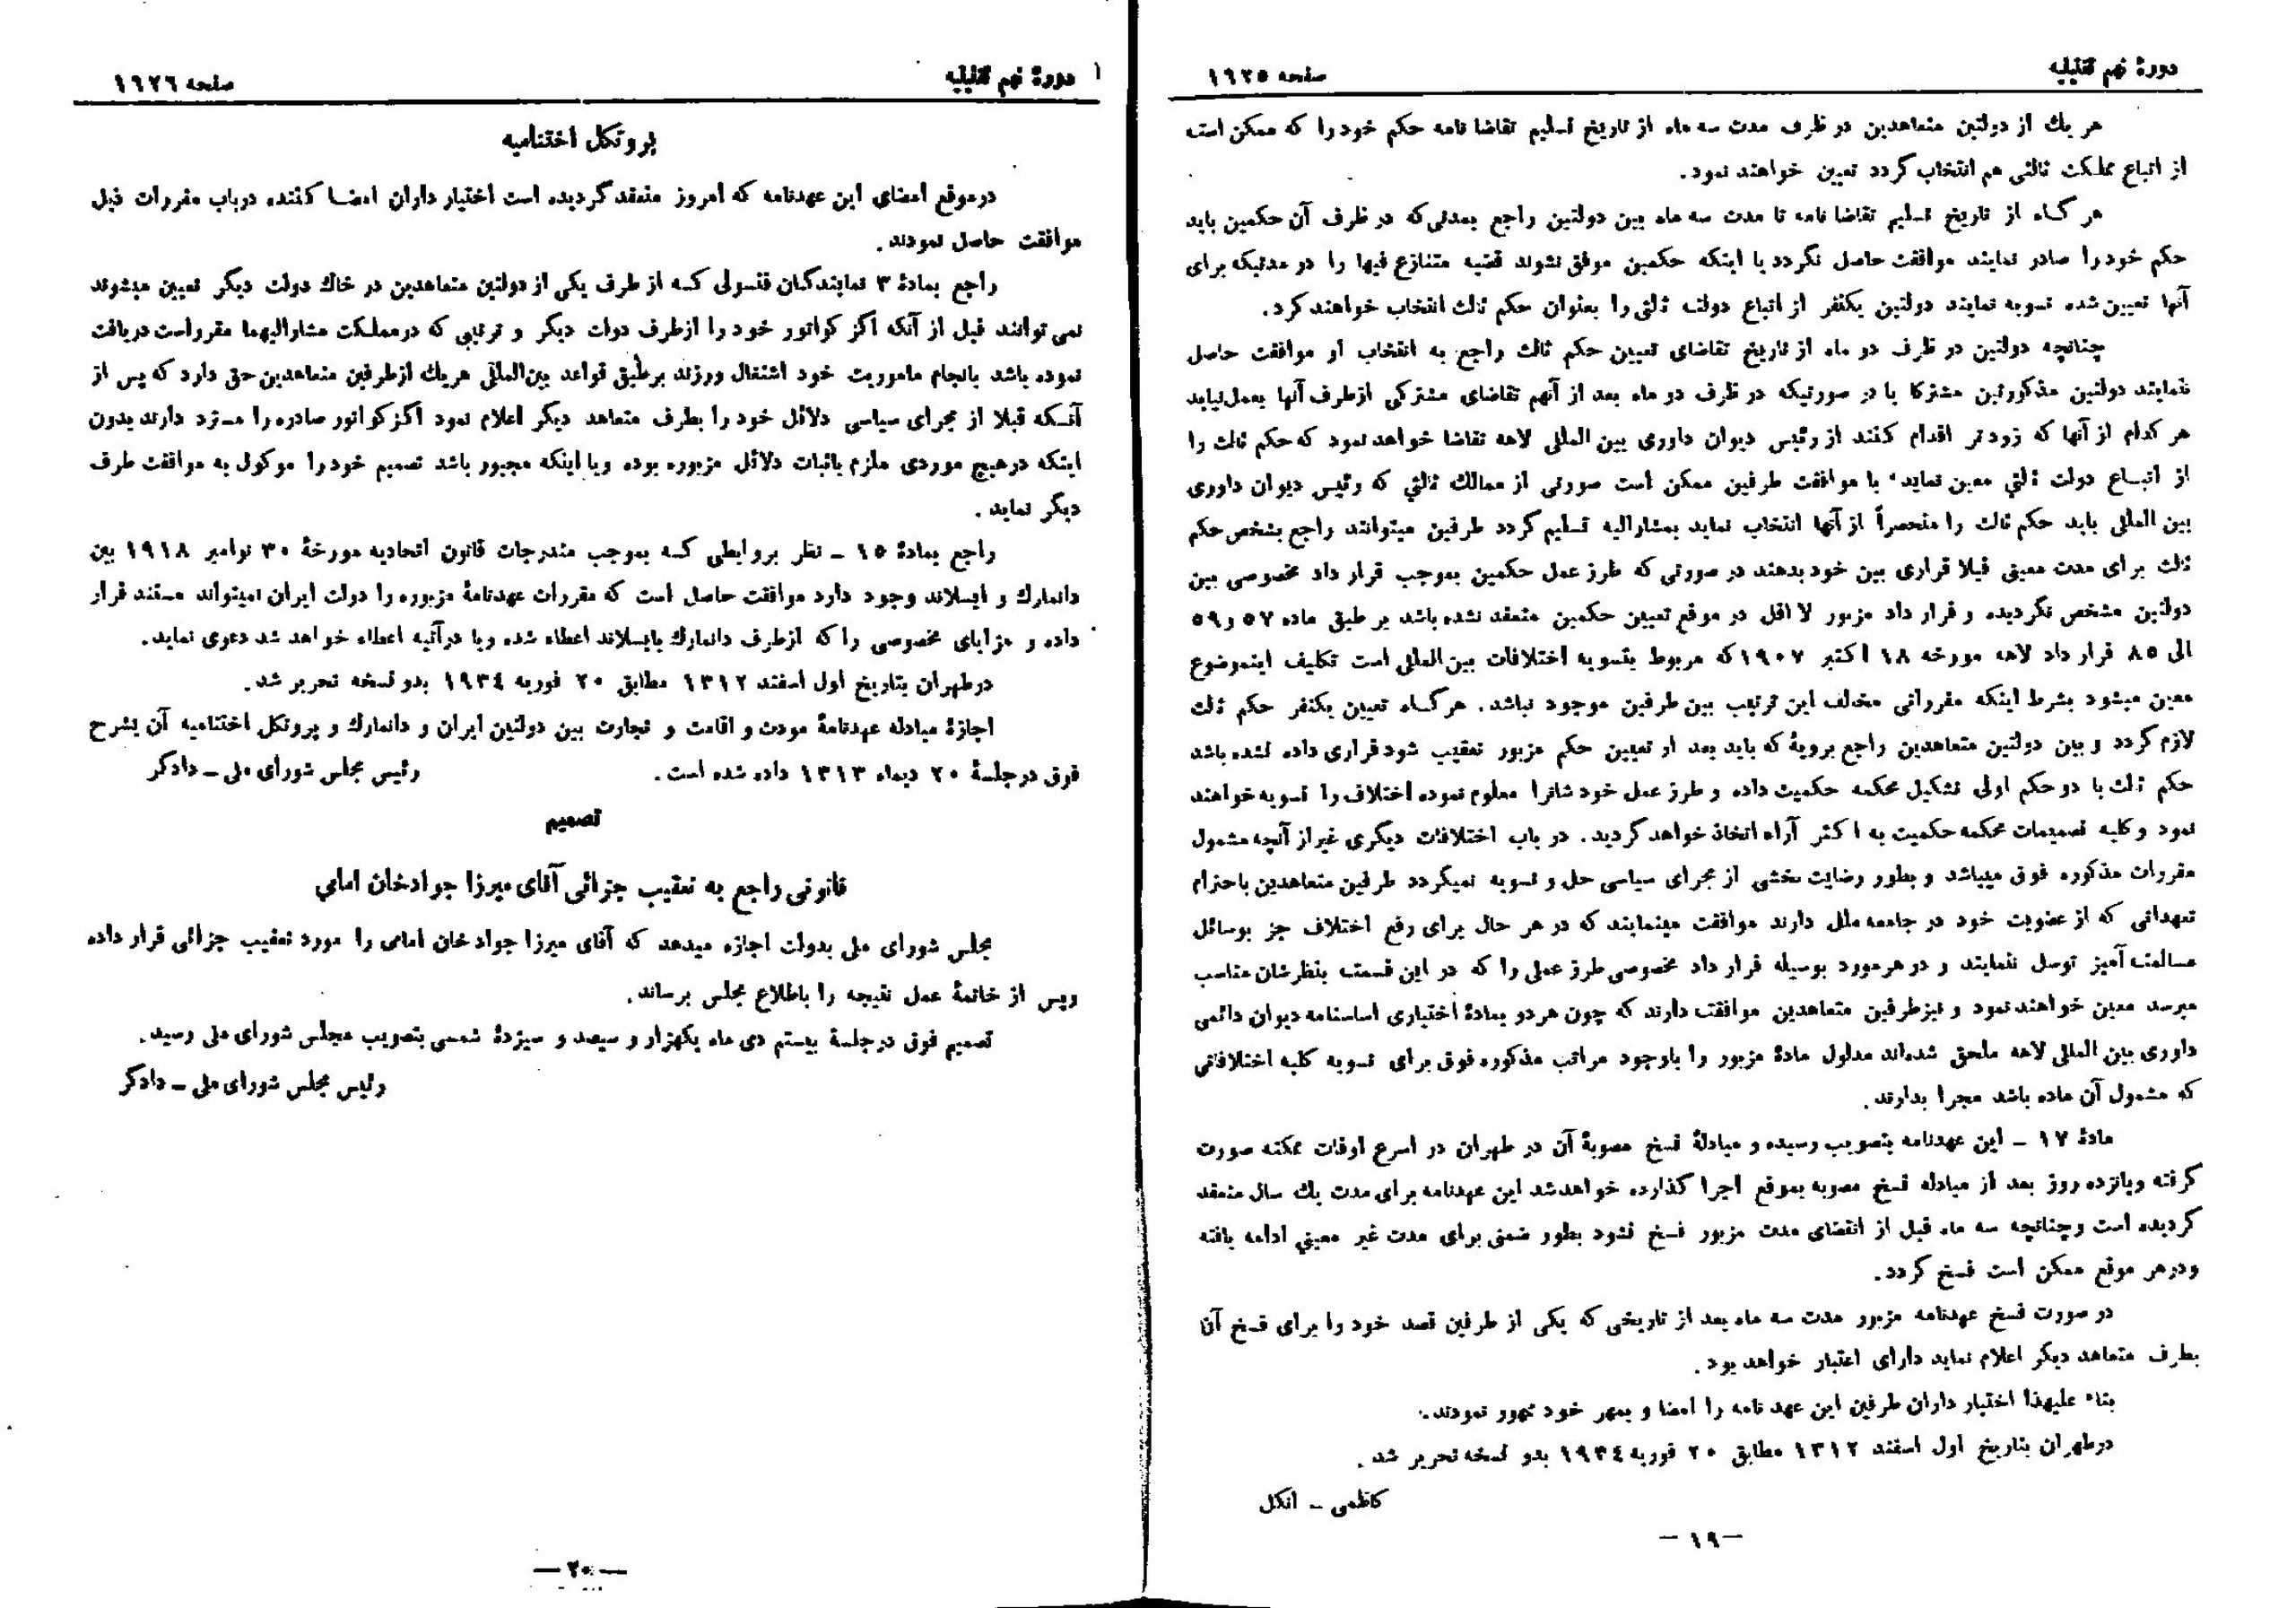 دورهٔ نهم تقنینیه
صفحه ۱۹۲۵
هر یك از دولتین متعاهدین در ظرف مدت سه ماه از تاریخ تسلیم تقاضا نامه حکم خود را که ممکن است
از اتباع مملکت ثالثی هم انتخاب گردد تعیین خواهند نمود.
هر گاه از تاریخ تسلیم تقاضا نامه تا مدت سه ماه بین دولتین راجع بمدتی که در ظرف آن حکمین باید
حکم خود را صادر نمایند موافقت حاصل نگردد یا اینکه حکمین موفق نشوند قضیه متنازع فیها را در مدتیکه برای
آنها تعیین شده تسویه نمایند دولتین یکنفر از اتباع دولت ثالثی را بعنوان حکم ثالث انتخاب خواهند کرد.
چنانچه دولتین در ظرف دو ماه از تاریخ تقاضای تعیین حکم ثالث راجع به انتخاب او موافقت حاصل
ننمایند دولتین مذکورتین مشترکا یا در صورتیکه در ظرف دو ماه بعد از آنهم تقاضای مشترکی ازطرف آنها بعمل نیاید
هر کدام از آنها که زودتر اقدام کنند از رئیس دیوان داوری بین المللی لاهه تقاضا خواهد نمود که حکم ثالث را
از اتباع دولت ثالثی معین نماید، با موافقت طرفین ممکن است صورتی از ممالك ثالثی که رئیس دیوان داوری
بین المللی باید حکم ثالث را منحصراً از آنها انتخاب نماید بمشارالیه تسلیم گردد طرفین میتوانند راجع بشخص حکم
ثالث برای مدت معینی قبلا قراری بین خود بدهند در صورتی که طرز عمل حکمین بموجب قرار داد مخصوصی بین
دولتین مشخص نگردیده و قرار داد مزبور لا اقل در موقع تعیین حکمین منعقد نشده باشد بر طبق ماده ۵۷ و ۵۹
الی ۸۵ قرار داد لاهه مورخه ۱۸ اکتبر ۱۹۰۷ که مربوط بتسویه اختلافات بین المللی است تکلیف اینموضوع
معین میشود بشرط اینکه مقرراتی مخالف این ترتیب بین طرفین موجود نباشد. هر گاه تعیین یکنفر حکم ثالث
لازم گردد و بین دولتین متعاهدین راجع برویهٔ که باید بعد از تعیین حکم مزبور تعقیب شود قراری داده نشده باشد
حکم ثالث با دو حکم اولی تشکیل محکمه حکمیت داده و طرز عمل خود شانرا معلوم نموده اختلاف را تسویه خواهند
نمود و کلیه تصمیمات محکمه حکمیت به اکثر آراء اتخاذ خواهد گردید. در باب اختلافات دیگری غیر از آنچه مشمول
مقررات مذکوره فوق میباشد و بطور رضایت بخشی از مجرای سیاسی حل و تسویه نمیگردد طرفین متعاهدین با احترام
تعهداتی که از عضویت خود در جامعه ملل دارند موافقت مینمایند که در هر حال برای رفع اختلاف جز بوسائل
مسالمت آمیز توسل ننمایند و در هرمورد بوسیله قرار داد مخصوصی طرز عملی را که در این قسمت بنظرشان مناسب
میرسد معین خواهند نمود و نیز طرفین متعاهدین موافقت دارند که چون هر دو بمادهٔ اختیاری اساسنامه دیوان دائمی
داوری بین المللی لاهه ملحق شده‌اند مدلول مادهٔ مزبور را باوجود مراتب مذکوره فوق برای تسویه کلیه اختلافاتی
که مشمول آن ماده باشد مجرا بدارند.
مادهٔ ۱۷ ـ این عهدنامه بتصویب رسیده و مبادلهٔ نسخ مصوبهٔ آن در طهران در اسرع اوقات ممکنه صورت
گرفته و پانزده روز بعد از مبادله نسخ مصوبه بموقع اجرا گذارده خواهد شد این عهدنامه برای مدت یك سال منعقد
گردیده است و چنانچه سه ماه قبل از انقضای مدت مزبور فسخ نشود بطور ضمنی برای مدت غیر معینی ادامه یافته
ودرهر موقع ممکن است فسخ گردد.
در صورت فسخ عهدنامه مزبور مدت سه ماه بعد از تاریخی که یکی از طرفین قصد خود را برای فسخ آن
بطرف متعاهد دیگر اعلام نماید دارای اعتبار خواهد بود.
بناء علیهذا اختیار داران طرفین این عهد نامه را امضا و بمهر خود ممهور نمودند.
درطهران بتاریخ اول اسفند ۱۳۱۲ مطابق ۲۰ فوریه ۱۹۳۴ بدو نسخه تحریر شد.
کاظمی ـ انگل
— ۱۹ —
دورهٔ نهم تقنینیه
صفحه ۱۹۲۶
پروتکل اختتامیه
درموقع امضای این عهدنامه که امروز منعقد گردیده است اختیار داران امضا کننده درباب مقررات ذیل
موافقت حاصل نمودند.
راجع بمادهٔ ۳ نمایندگان قنسولی که از طرف یکی از دولتین متعاهدین در خاك دولت دیگر تعیین میشوند
نمی توانند قبل از آنکه اگز کواتور خود را ازطرف دولت دیگر و ترتیبی که درمملکت مشارالیهما مقرراست دریافت
نموده باشد بانجام ماموریت خود اشتغال ورزند برطبق قواعد بین‌المللی هریك ازطرفین متعاهدین حق دارد که پس از
آنکه قبلا از مجرای سیاسی دلائل خود را بطرف متعاهد دیگر اعلام نمود اگزکواتور صادره را مسترد دارند بدون
اینکه درهیچ موردی ملزم باثبات دلائل مزبوره بوده ویا اینکه مجبور باشد تصمیم خود را موکول به موافقت طرف
دیگر نماید.
راجع بمادهٔ ۱۵ ـ نظر بروابطی که بموجب مندرجات قانون اتحادیه مورخهٔ ۳۰ نوامبر ۱۹۱۸ بین
دانمارك و ایسلاند وجود دارد موافقت حاصل است که مقررات عهدنامهٔ مزبوره را دولت ایران نمیتواند مستند قرار
داده و مزایای مخصوصی را که ازطرف دانمارك بایسلاند اعطاء شده ویا درآتیه اعطاء خواهد شد دعوی نماید.
درطهران بتاریخ اول اسفند ۱۳۱۲ مطابق ۲۰ فوریه ۱۹۳۴ بدو نسخه تحریر شد.
اجازهٔ مبادله عهدنامهٔ مودت و اقامت و تجارت بین دولتین ایران و دانمارك و پروتکل اختتامیه آن بشرح
فوق درجلسهٔ ۲۰ دیماه ۱۳۱۳ داده شده است. رئیس مجلس شورای ملی ـ دادگر
تصمیم
قانونی راجع به تعقیب جزائی آقای میرزا جوادخان امامی
مجلس شورای ملی بدولت اجازه میدهد که آقای میرزا جواد خان امامی را مورد تعقیب جزائی قرار داده
وپس از خاتمهٔ عمل نتیجه را باطلاع مجلس برساند.
تصمیم فوق درجلسهٔ بیستم دی ماه یکهزار و سیصد و سیزدهٔ شمسی بتصویب مجلس شورای ملی رسید.
رئیس مجلس شورای ملی ـ دادگر
— ۲۰ —